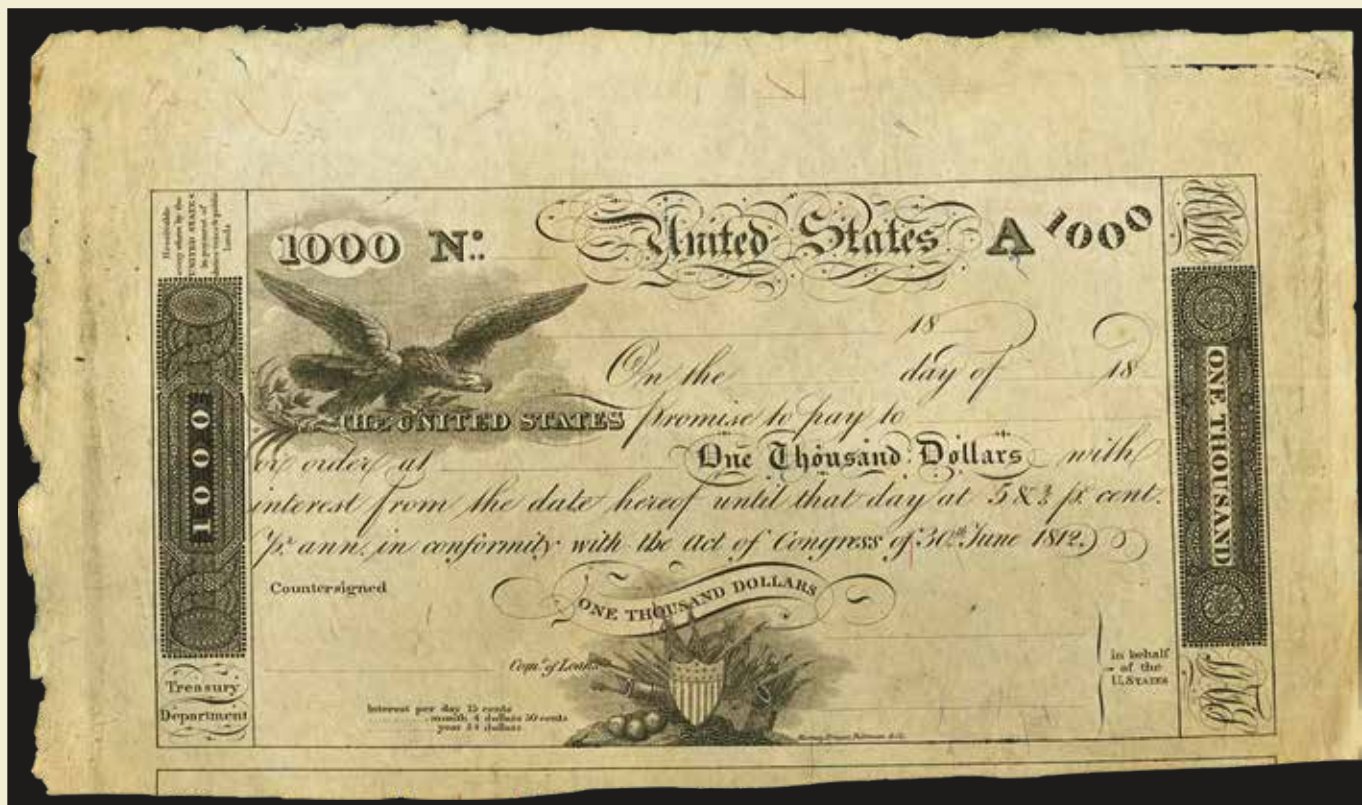 Receivable
every where by the
UNITED STATES
in payment of
duties taxes & public
Lands
1000 No. United States A 1000
18
On the day of 18
THE UNITED STATES promise to pay to
or order at One Thousand Dollars with
interest from the date hereof until that day at 5 & 2/5 pr. cent.
pr. ann. in conformity with the act of Congress of 30th June 1812.
Countersigned
ONE THOUSAND DOLLARS
Comr. of Loans
in behalf
of the
U. STATES
Interest per day 15 cents
month 4 dollars 50 cents
year 54 dollars
Murray, Draper, Fairman & Co.
1000
Treasury
Department
ONE THOUSAND